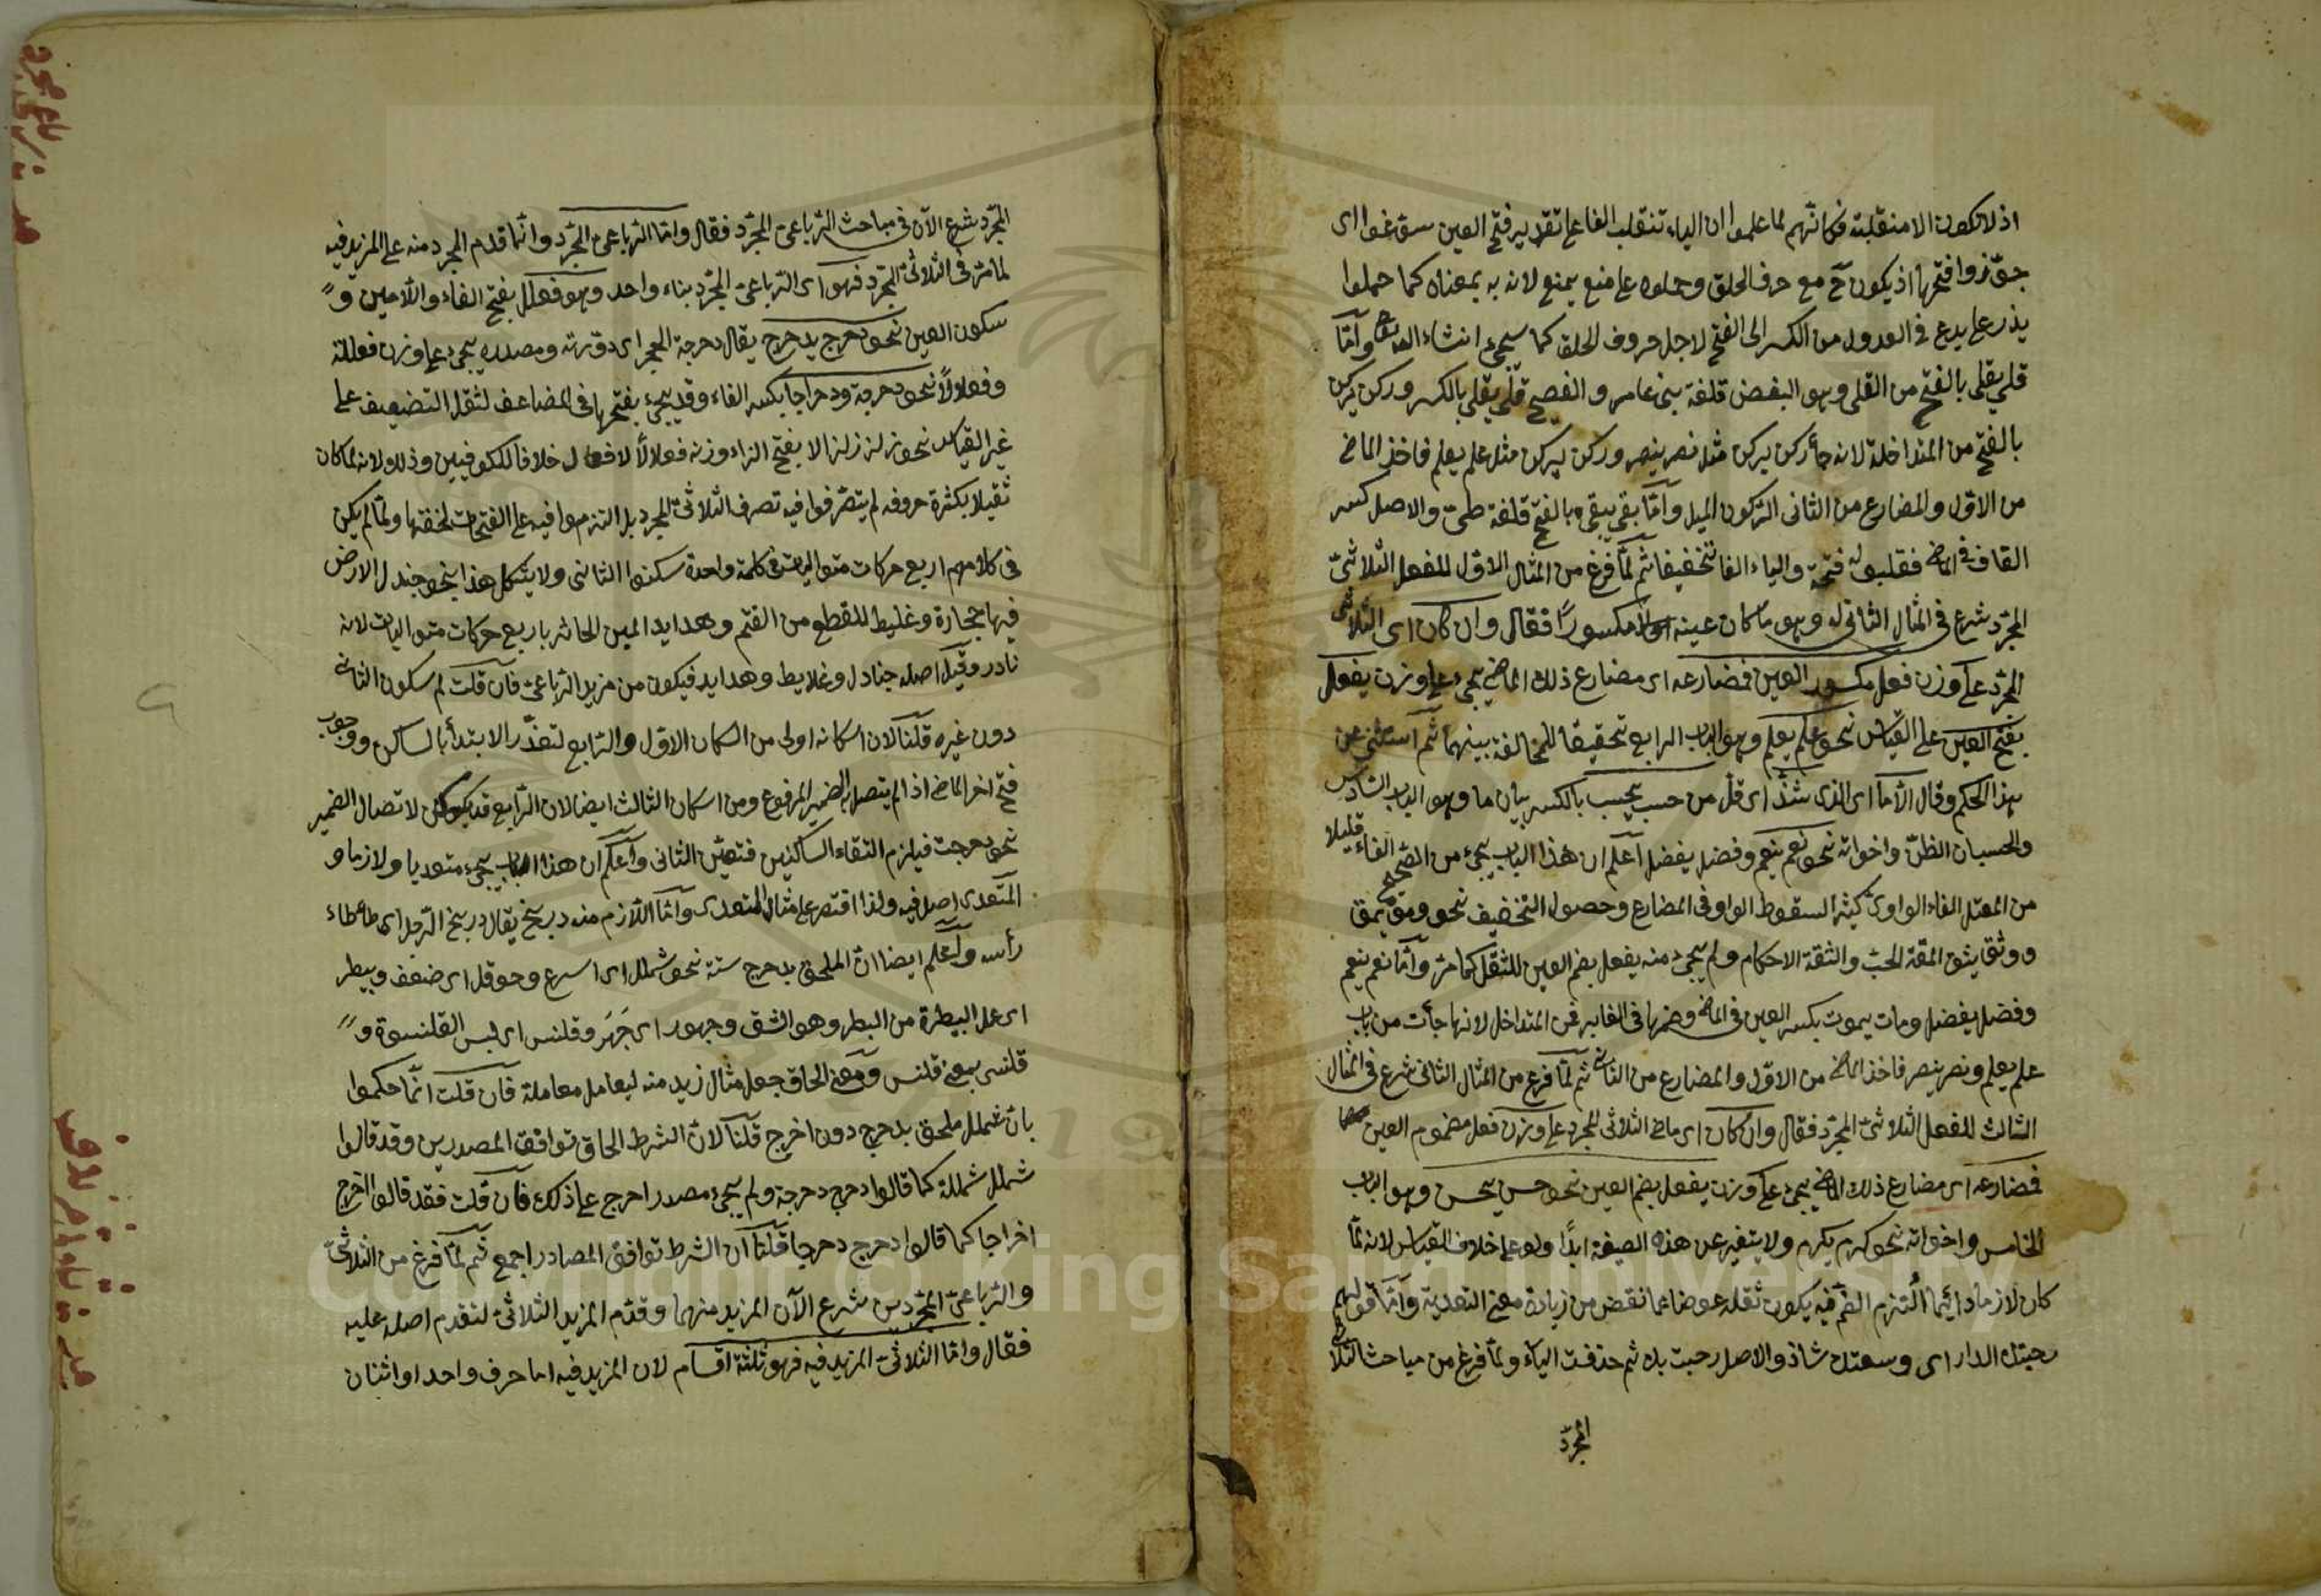 اذ لا تكون الا منقلبة فكانهم لما علموا ان الياء تنقلب الفا على تقدير فتح العين سوغوا اى
جوّزوا فتحها اذ يكون ح مع حرف الحلق وحملوه على منع يمنع لانه به بمعناه كما حملوا
يذر على يدع فى العدول من الكسر الى الفتح لاجل حروف الحلق كما سيجئ انشاء الله تعالى وامّا
قلى يقلى بالفتح من القلى وهو البغض فلغة بنى عامر والفصيح قلى يقلى بالكسر وركن يركن
بالفتح من المتداخلة لانه جأ ركن يركن مثل نصر ينصر وركن يركن مثل علم يعلم فاخذ الماضى
من الاوّل والمضارع من الثانى الركون الميل وامّا بقى يبقى بالفتح فلغة طىّ والاصل كسر
القاف فى الماضى فقلبوا فتحة والياء الفا تخفيفا ثم لمّا فرغ من المثال الاوّل للفعل الثلاثىّ
المجرّد شرع فى المثال الثانى له وهو ما كان عينه مكسورًا فقال وان كان اى الثلاثى
المجرّد على وزن فعل مكسور العين فمضارعه اى مضارع ذلك الماضى يجئ على وزن يفعل
بفتح العين على القياس نحو علم يعلم وهو الباب الرابع تحقيقا للمخالفة بينهما ثم استثنى عن
هذا الحكم وقال الّا ما اى الذى شذّ اى قلّ من حسب يحسب بالكسر بيان ما وهو الباب السّادس
والحسبان الظنّ واخواته نحو نعم ينعم وفضل يفضل اعلم ان هذا الباب يجئ من الصّحيح الفاء قليلا
من المعتل الفاء الواوىّ كثيرا لسقوط الواو فى المضارع وحصول التخفيف نحو ومق يمق
ووثق يثق المقة الحبّ والثقة الاحكام ولم يجئ منه يفعل بضم العين للثقل كما مرّ وامّا نعم ينعم
وفضل يفضل ومات يموت بكسر العين فى الماضى وضمها فى الغابر فمن المتداخل لانها جأت من باب
علم يعلم ونصر ينصر فاخذ الماضى من الاوّل والمضارع من الثانى ثم لمّا فرغ من المثال الثانى شرع فى المثال
الثالث للفعل الثلاثىّ المجرّد فقال وان كان اى ماضى الثلاثى المجرد على وزن فعل مضموم العين
فمضارعه اى مضارع ذلك الماضى يجئ على وزن يفعل بضم العين نحو حسن يحسن وهو الباب
الخامس واخواته نحو كرم يكرم ولا يتغير عن هذه الصيغة ابدًا ولو على خلاف القياس لانه لمّا
كان لازما دائما التزم الضّم فيه يكون ثقله عوضا عما نقض من زيادة معنى التعدية وامّا قولهم
رحبتك الدار اى وسعتك شاذ والاصل رحبت بك ثم حذفت الباء ولمّا فرغ من مباحث الثلاثى
المجرّد
المجرّد شرع الآن فى مباحث الرّباعىّ المجرّد فقال وامّا الرّباعىّ المجرّد وانّما قدم المجرد منه على المزيد فيه
لما مرّ فى الثلاثىّ المجرّد فهو اى الرّباعىّ المجرّد بناء واحد وهو فعلل بفتح الفاء واللّامين و
سكون العين نحو دحرج يدحرج يقال دحرجة الحجر اى دوّرته ومصدره يجئ على وزن فعللة
وفعلالًا نحو دحرجة ودحراجا بكسر الفاء وقد يجئ بفتحها فى المضاعف لثقل التضعيف على
غير القياس نحو زلزل زلزالا بفتح الزاء وزنه فعلالًا لا فعفال خلافا للكوفيين وذلك لانه لما كان
ثقيلا بكثرة حروفه لم يتصرّفوا فيه تصرف الثلاثىّ المجرد بل التزموا فيه على الفتحات لخفتها ولمّا لم يكن
فى كلامهم اربع حركات متواليات فى كلمة واحدة سكنوا الثانى ولا يشكل هذا بنحو جندل الارض
فيها حجارة وغليط للقطيع من الغنم وهدايد اللبن الخاثر باربع حركات متواليات لانه
نادر وقيل اصله جنادل وغلايط وهدايد فيكون من مزيد الرّباعىّ فان قلت لم سكون الثانى
دون غيره قلنا لان اسكانه اولى من اسكان الاوّل والرّابع لتعذّر الابتدأ بالساكن ووجوب
فتح اخر الماضى اذا لم يتصل به الضمير المرفوع ومن اسكان الثالث ايضا لان الرّابع قد يسكن لاتصال الضمير
نحو دحرجت فيلزم التقاء الساكنين فتعيّن الثانى واعلم ان هذا الباب يجئ متعديا ولازما و
المتعدى اصل فيه ولذا اقتصر على مثال المتعدى وامّا اللّازم منه دربخ يقال دربخ الرّجل اى طاطاء
رأسه واعلم ايضا انّ الملحق بدحرج ستة نحو شملل اى اسرع وحوقل اى ضعف وبيطر
اى عمل البيطرة من البطر وهو الشق وجهور اى جَهَر وقلنس اى لبس القلنسوة و
قلنسى بمعنى قلنس ومعنى الحاق جعل مثال زيد منه ليعامل معاملة فان قلت انّما حكموا
بان شملل ملحق بدحرج دون اخرج قلنا لانّ الشرط الحاق توافق المصدرين وقد قالوا
شملل شمللة كما قالوا دحرج دحرجة ولم يجئ مصدر اخرج على ذلك فان قلت فقد قالوا اخرج
اخراجا كما قالوا دحرج دحرجا قلنا ان الشرط توافق المصادر اجمع ثم لمّا فرغ من الثلاثىّ
والرّباعىّ المجرّدين شرع الآن المزيد منهما وقدّم المزيد الثلاثىّ لتقدم اصله عليه
فقال وامّا الثلاثىّ المزيد فيه فهو ثلثة اقسام لان المزيد فيه اما حرف واحد او اثنان
Copyright © King Saud University